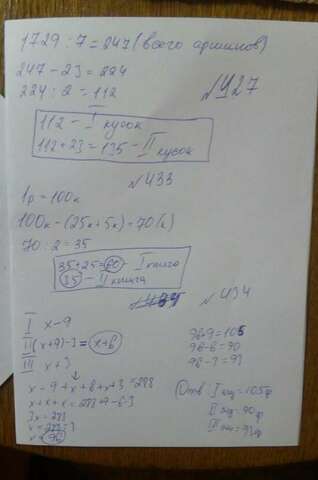 1729 : 7 = 247 (всего аршинов)
247 - 23 = 224
224 : 2 = 112
№427
112 - I кусок
112 + 23 = 135 - II кусок
№433
1р = 100к
100к - (25к + 5к) = 70 (к)
70 : 2 = 35
35 + 25 = 60 - I книга
35 - II книга
№434
I x - 9
II (x + 9) - 3 = x + 6
III x + 3
x - 9 + x + 6 + x + 3 = 288
x + x + x = 273 + 9 - 6 - 3
3x = 273
x = 273 : 3
x = 96
96 + 9 = 105
96 - 6 = 90
96 - 3 = 93
Отв: I - 105р
II - 90р
III - 93р